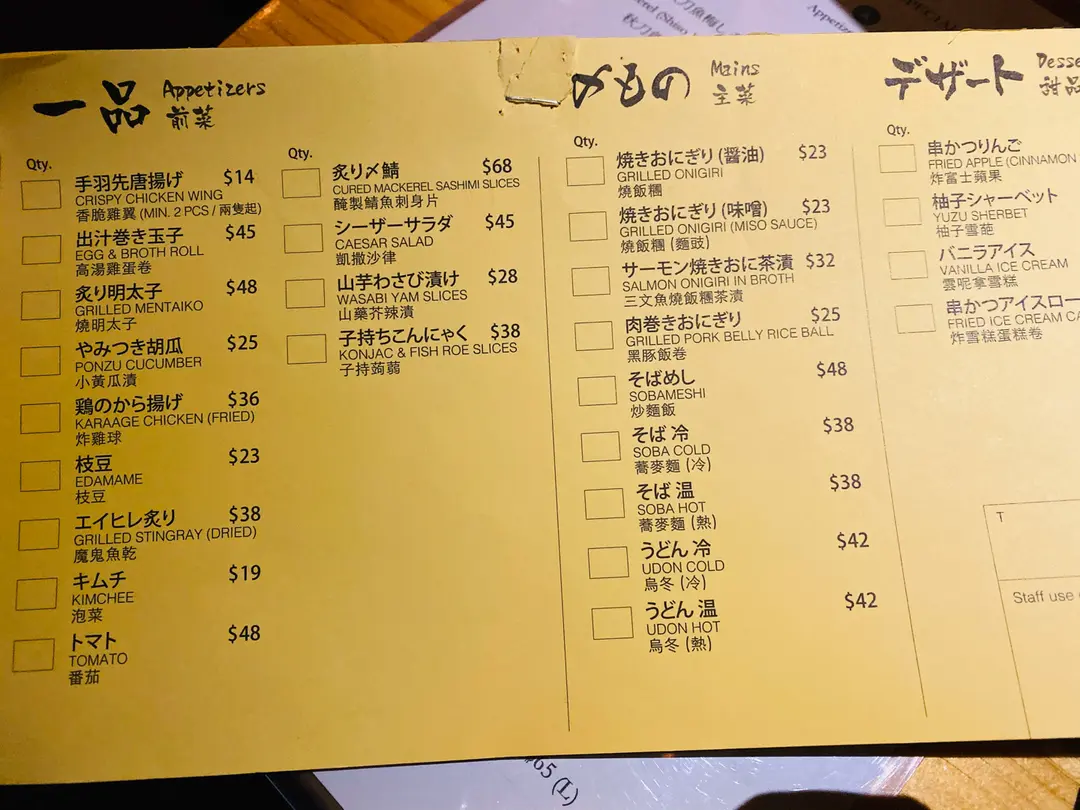 一品 Appetizers
前菜
Qty.
手羽先唐揚げ $14
CRISPY CHICKEN WING
香脆雞翼 (MIN. 2 PCS / 兩隻起)
出汁巻き玉子 $45
EGG & BROTH ROLL
高湯雞蛋卷
炙り明太子 $48
GRILLED MENTAIKO
燒明太子
やみつき胡瓜 $25
PONZU CUCUMBER
小黃瓜漬
鶏のから揚げ $36
KARAAGE CHICKEN (FRIED)
炸雞球
枝豆 $23
EDAMAME
枝豆
エイヒレ炙り $38
GRILLED STINGRAY (DRIED)
魔鬼魚乾
キムチ $19
KIMCHEE
泡菜
トマト $48
TOMATO
番茄
Qty.
炙り〆鯖 $68
CURED MACKEREL SASHIMI SLICES
醃製鯖魚刺身片
シーザーサラダ $45
CAESAR SALAD
凱撒沙律
山芋わさび漬け $28
WASABI YAM SLICES
山藥芥辣漬
子持ちこんにゃく $38
KONJAC & FISH ROE SLICES
子持蒟蒻
〆もの Mains
主菜
Qty.
焼きおにぎり (醤油) $23
GRILLED ONIGIRI
燒飯糰
焼きおにぎり (味噌) $23
GRILLED ONIGIRI (MISO SAUCE)
燒飯糰 (麵豉)
サーモン焼きおに茶漬 $32
SALMON ONIGIRI IN BROTH
三文魚燒飯糰茶漬
肉巻きおにぎり $25
GRILLED PORK BELLY RICE BALL
黑豚飯卷
そばめし $48
SOBAMESHI
炒麵飯
そば 冷 $38
SOBA COLD
蕎麥麵 (冷)
そば 温 $38
SOBA HOT
蕎麥麵 (熱)
うどん 冷 $42
UDON COLD
烏冬 (冷)
うどん 温 $42
UDON HOT
烏冬 (熱)
デザート Desse
甜品
Qty.
串かつりんご
FRIED APPLE (CINNAMON
炸富士蘋果
柚子シャーベット
YUZU SHERBET
柚子雪葩
バニラアイス
VANILLA ICE CREAM
雲呢拿雪糕
串かつアイスロー
FRIED ICE CREAM CA
炸雪糕蛋糕卷
T
Staff use
65 (L)